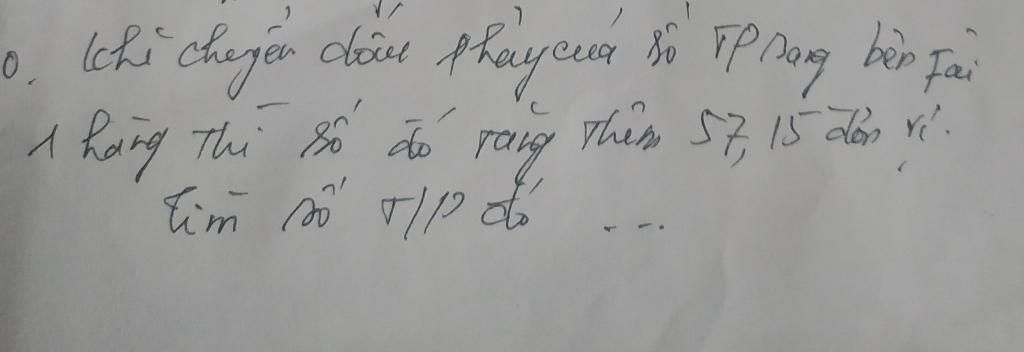 0. Khi chuyển dấu phẩy của số TP sang bên fải
1 hàng thì số đó tăng thêm 57,15 đơn vị.
tìm số T/P đó ...